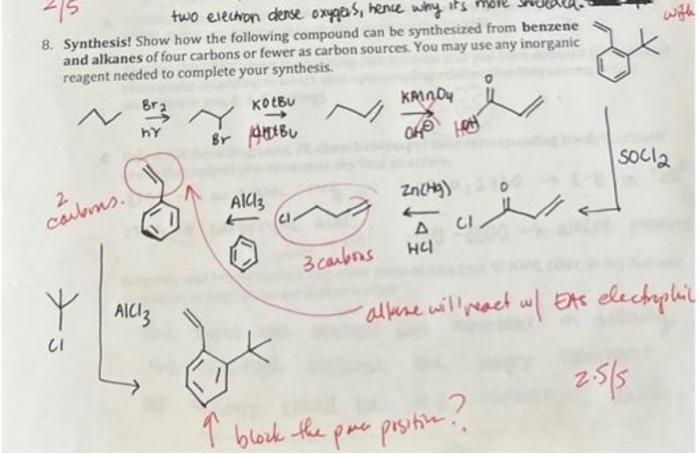 2/5
two electron dense oxygens, hence why it's more shielded.
with
8. Synthesis! Show how the following compound can be synthesized from benzene
and alkanes of four carbons or fewer as carbon sources. You may use any inorganic
reagent needed to complete your synthesis.
Br2
hν
Br
KOtBu
HOtBu
KMnO4
OH⊖
O
HO
SOCl2
2
carbons.
AlCl3
Cl
3 carbons
Zn(Hg)
Δ
HCl
O
Cl
alkene will react w/ EAS electrophile
Cl
AlCl3
2.5/5
↑ block the para position?